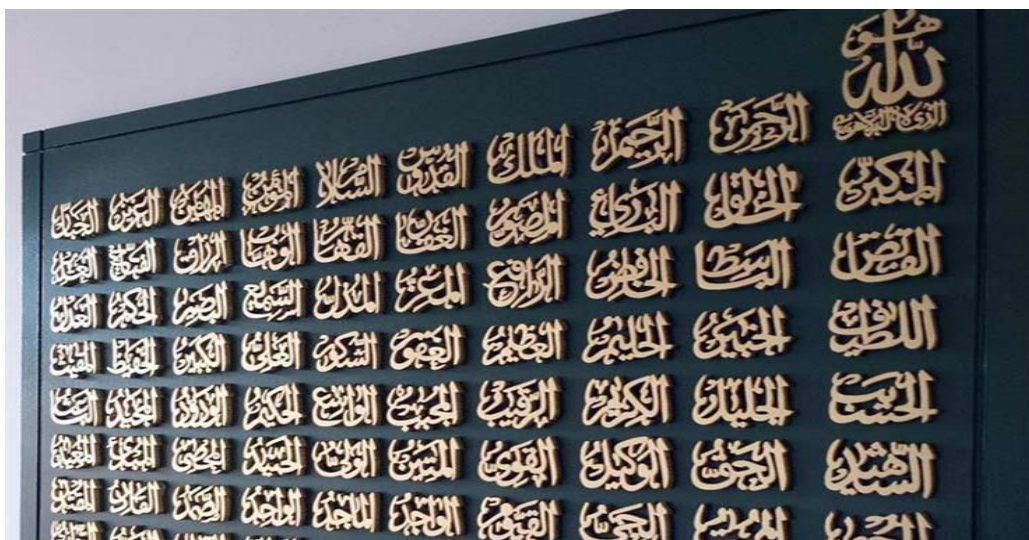 هو الله الذي لا إله إلا هو
الرحمن الرحيم الملك القدوس السلام المؤمن المهيمن العزيز الجبار
المتكبر الخالق البارئ المصور الغفار القهار الوهاب الرزاق الفتاح العليم
القابض الباسط الخافض الرافع المعز المذل السميع البصير الحكم العدل
اللطيف الخبير الحليم العظيم الغفور الشكور العلي الكبير الحفيظ المقيت
الحسيب الجليل الكريم الرقيب المجيب الواسع الحكيم الودود المجيد الباعث
الشهيد الحق الوكيل القوي المتين الولي الحميد المحصي المبدئ المعيد
المحيي المميت الحي القيوم الواجد الماجد الواحد الصمد القادر المقتدر